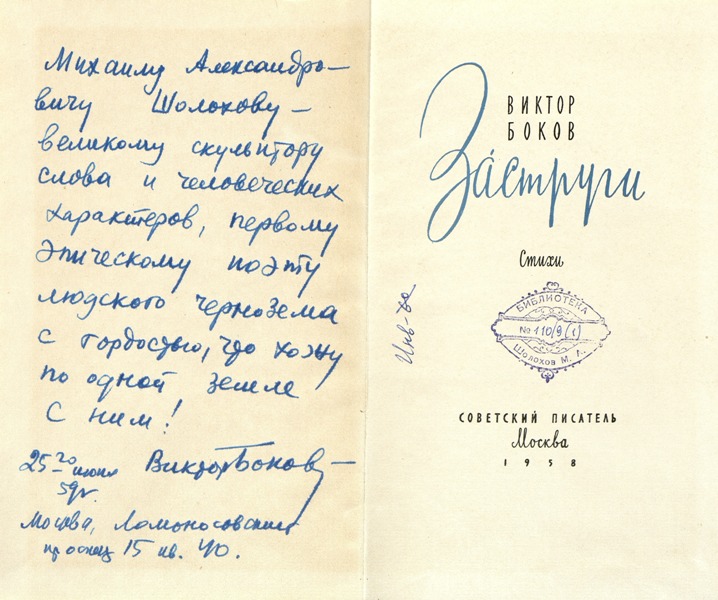 Михаилу Александро-
вичу Шолохову —
великому скульптору
слова и человеческих
характеров, первому
эпическому поэту
людского чернозема
с гордостью, что хожу
по одной земле
с ним!
25го июня Виктор Боков —
59г.
Москва, Ломоносовский
проспект 15 кв. 40.
ВИКТОР
БОКОВ
За́струги
Стихи
Инв-ва
БИБЛИОТЕКА
№ 110/9 (1)
Шолохов М. А.
СОВЕТСКИЙ ПИСАТЕЛЬ
Москва
1958